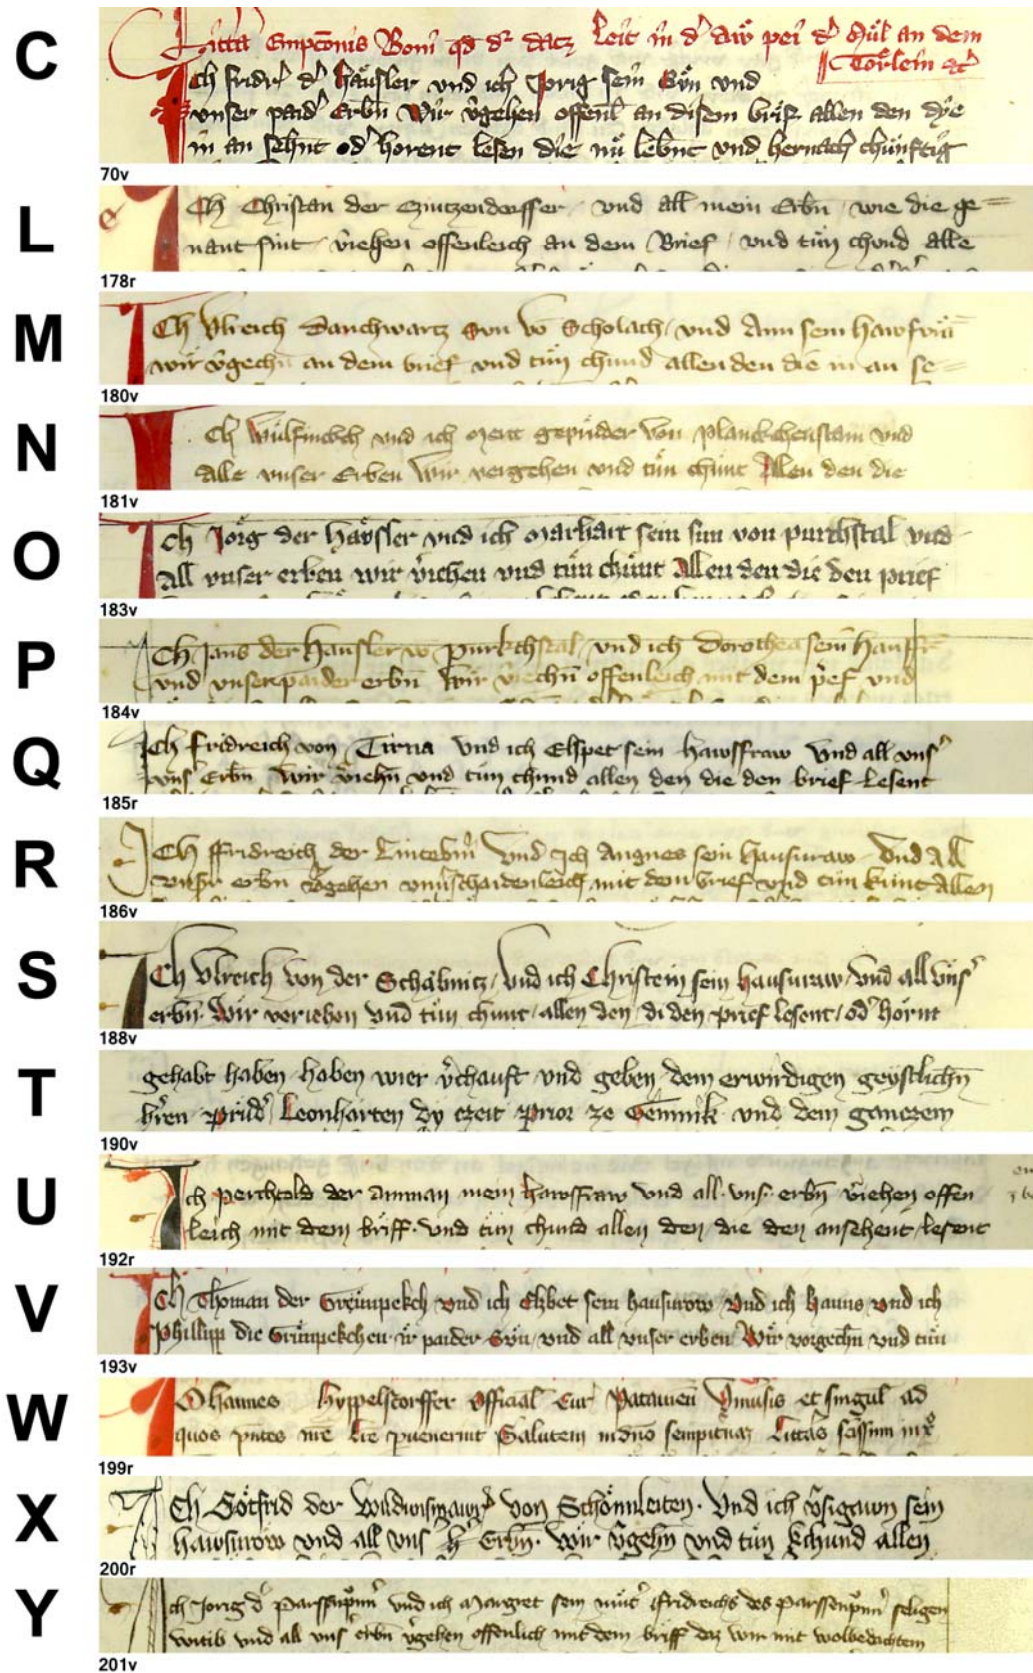 C
Litera Empcionis Boni qd d dacz Leit in d' aw pei d' Mül an dem
Törlein etc
Ich fridr' d' häusler vnd ich Jorig sein Sün vnd
vnser paid' Erbn Wir v'gehen offenl an disem brif allen den dye
in an sehnt od' horent lesen die nu lebnt vnd hernach chünftig
70v
L
Ich Christan der vnd all mein Erbn wie die ge=
nant sint v'iehen offenleich an dem Brief vnd tün chund alle
178r
M
Ich Vlreich Danchwartz Svn vo Scholach vnd Ann sein hawsvrau
wir v'gechn an dem brief vnd tün chund allen den die in an se=
180v
N
Ich vnd ich gepruder von planckchenstain vnd
alle vnser Erben Wir vergehen vnd tün chunt Allen den die
181v
O
Ich Jorg der Häwsler vnd ich Marhart sein sun von purchstal vnd
all vnser erben wir v'iehen vnd tün chunt Allen den die den prief
183v
P
Ich Jans der Hausler vo purkchstal vnd ich Dorothea sein hausfr
vnd vnser paider erbn Wir v'iechn offenleich mit dem p'ef vnd
184v
Q
Ich fridreich von Tirna vnd ich Elspet sein hawsfraw Vnd all vns'
vns' Erbn Wir v'iehn vnd tün chund allen den die den brief lesent
185r
R
Ich ffridreich der Vnd Ich Angnes sein hausuraw Vnd All
vnsr erbn v'gehen vnuerschaidenleich mit dem brief vnd tün kunt Allen
186v
S
Ich Vlreich von der Schäbnicz vnd ich Christein sein hausuraw vnd all vns'
erbn Wir veriehen vnd tün chunt allen den di den prief lesent od' hörnt
188v
T
gehabt haben haben wier v'chauft vnd geben dem erwirdigen geystlichn
h'ren prüd' Leonharten dy czeit prior ze Gemnik vnd dem ganczem
190v
U
Ich perchtold der amman mein hawsfraw vnd all vns erbn v'iehen offen
leich mit dem briff vnd tün chund allen den die den ansehent lesent
192r
V
Ich Thoman der Grünpekch vnd ich Elzbet sein hausurow vnd ich hanns vnd ich
Phillipp die Grünpekchen ir paider Sün vnd all vnser erben Wir vorgechn vnd tün
193v
W
Johannes Official Cur Patauien Vniuersis et singul ad
quos pntes nre lre puenerint Salutem in dno sempiternam Litteras
199r
X
Ich Götfrid der von Schönnleiten Vnd ich sein
hawsurow vnd all vns Erbn wir v'gehn vnd tün kchund allen
200r
Y
Ich Jorig d' vnd ich Margret sein müt' ffridreichs des seligen
witib vnd all vns' erbn v'gehen offenlich mit dem briff daz wir mit wolbedachtem
201v